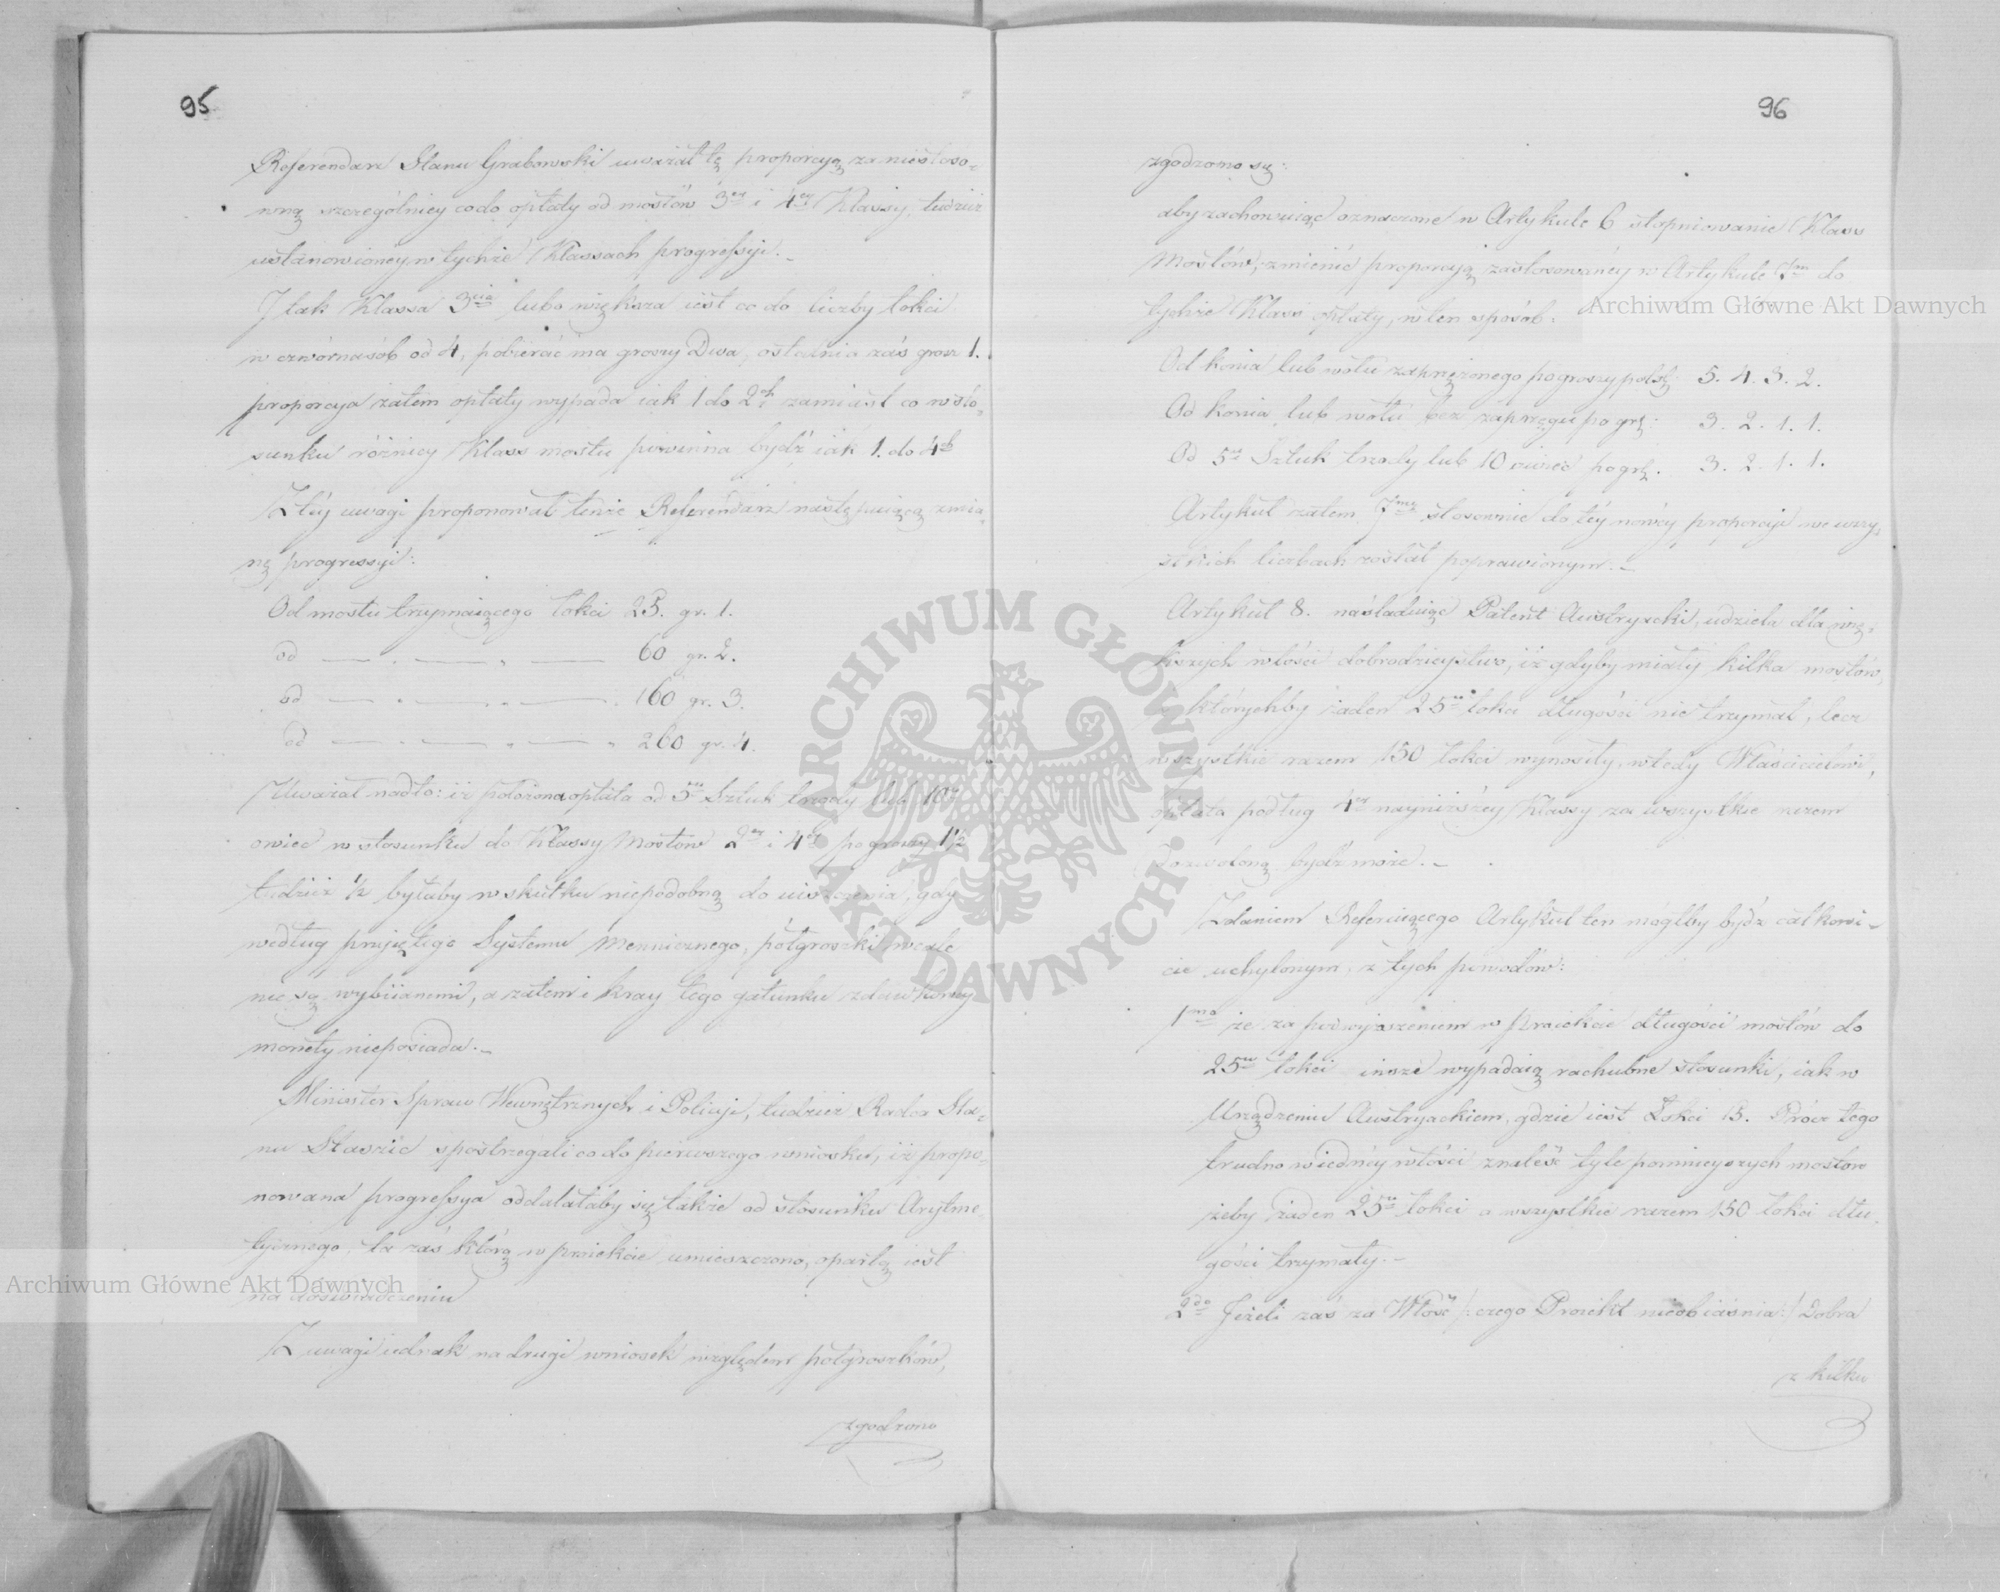 95
Referendarz Stanu Grabowski uważał tę proporcyą za niestoso-
wną szczególniey co do opłaty od mostów 3ey i 4ey Klassy, tudzież
ustanowioney w tychże Klassach progressyi.-
I tak Klassa 3cia lubo większa iest co do liczby łokci
w czwórnasób od 4, pobierać ma groszy Dwa, ostatnia zaś grosz 1.
proporcya zatem opłaty wypada iak 1 do 2ch zamiast co w sto-
sunku różnicy Klass mostu powinna bydź iak 1. do 4ch
Z téy uwagi proponował tenże Referendarz następuiącą zmia-
nę progressyi:
Od mostu trzymaiącego łokci 25. gr. 1.
od — . — , — 60 gr. 2.
od — . — . — . 160 gr. 3.
od — . — . — . 260 gr. 4.
Uważał nadto: iż położona opłata od 5ciu Sztuk trzody lub 10u
owiec w stosunku do Klassy Mostów 2ey i 4ey po groszy 1 1/2
tudzież 1/2 byłaby w skutku niepodobną do uiszczenia, gdy
według przyiętego Systemu Mennicznego, półgroszki wcale
nie są wybiianemi, a zatem i kray tego gatunku zdawkowey
monety nieposiada.-
Minister Spraw Wewnętrznych i Policyi, tudzież Radca Sta-
nu Staszic spostrzegali co do pierwszego wniosku, iż propo-
nowana progressya oddalałaby się także od stosunku Arytme-
tycznego, ta zaś którą w proiekcie umieszczono, opartą iest
na doświadczeniu
Z uwagi iednak na drugi wniosek względem półgroszków,
zgodzono
96
zgodzono się:
aby zachowuiąc oznaczone w Artykule 6 stopniowanie Klass
Mostów, zmienić proporcyą zastosowaney w Artykule 7m do
tychże Klass opłaty, w ten sposób.
Od konia lub wołu zaprzężonego po groszy polsk: 5. 4. 3. 2.
Od konia lub wołu bez zaprzęgu po gr: 3. 2. 1. 1.
Od 5u Sztuk trzody lub 10 owiec po gr. 3. 2. 1. 1.
Artykuł zatem 7my stosownie do téy nowéy proporcyi we wszy-
stkich liczbach został poprawionym.-
Artykuł 8. naśladuiąc Patent Austryacki, udziela dla wię-
kszych włości dobrodzieystwo, iż gdyby miały kilka mostów,
z którychby żaden 25u łokci długości nie trzymał, lecz
wszystkie razem 150 łokci wynosiły, wtedy Właścicielowi,
opłata podług 4ey nayniższéy Klassy za wszystkie razem
dozwoloną bydź może.-
Zdaniem Referuiącego Artykuł ten mógłby bydź całkowi-
cie uchylonym, z tych powodów:
1mo że za podwyższeniem w Proiekcie długości mostów do
25u łokci insze wypadaią rachubne stosunki, iak w
Urządzeniu Austryackiem, gdzie iest Łokci 15. Prócz tego
trudno w iednéy włości znaleść tyle pomnieyszych mostów
żeby żaden 25u łokci a wszystkie razem 150 łokci dłu-
gości trzymały.-
2do Jeżeli zaś za Włość /: czego Proiekt nieobiaśnia :/ Dobra
z kilku
ARCHIWUM GŁÓWNE AKT DAWNYCH
Archiwum Główne Akt Dawnych
Archiwum Główne Akt Dawnych